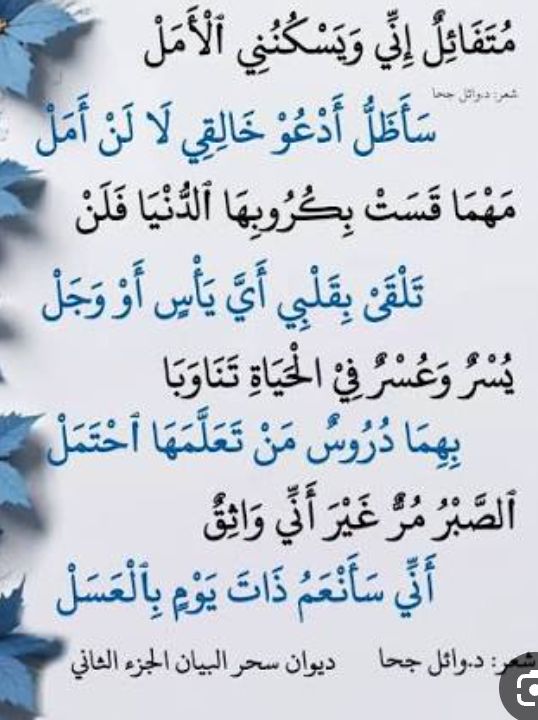 مُتَفَائِلٌ إِنِّي وَيَسْكُنُنِي ٱلْأَمَلْ
شعر: د.وائل جحا
سَأَظَلُّ أَدْعُوْ خَالِقِي لَا لَنْ أَمَلْ
مَهْمَا قَسَتْ بِكُرُوبِهَا ٱلدُّنْيَا فَلَنْ
تَلْقَىْ بِقَلْبِي أَيَّ يَأْسٍ أَوْ وَجَلْ
يُسْرٌ وَعُسْرٌ فِيْ الْحَيَاةِ تَنَاوَبَا
بِهِمَا دُرُوسٌ مَنْ تَعَلَّمَهَا ٱحْتَمَلْ
ٱلصَّبْرُ مُرٌّ غَيْرَ أَنِّي وَاثِقٌ
أَنِّي سَأَنْعَمُ ذَاتَ يَوْمٍ بِٱلْعَسَلْ
شعر: د.وائل جحا ديوان سحر البيان الجزء الثاني